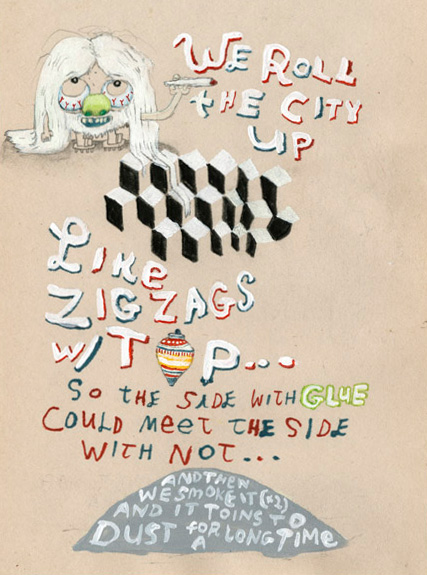 WE ROLL
tHE CITY
UP
LIKe
ZIGZAGS
w/ TOP...
SO tHE SIDE WITH GLUE
COULD MeeT tHE SIDE
WITH NOT...
AND THEN
WE SMOKE IT (x2)
AND IT TOINS TO
DUST foR A LONG TIMe